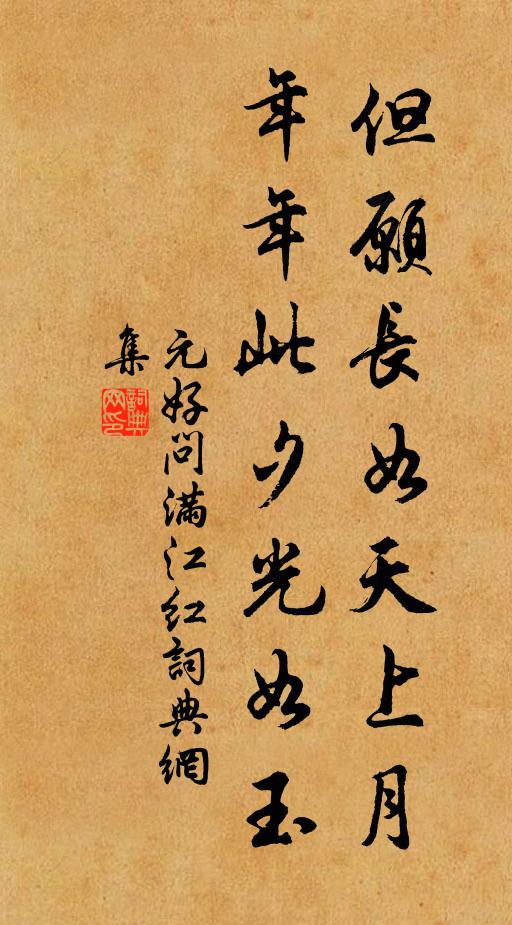 但願長如天上月
年年此夕光如玉
元好问满江红詞典網
集
詞典
网印